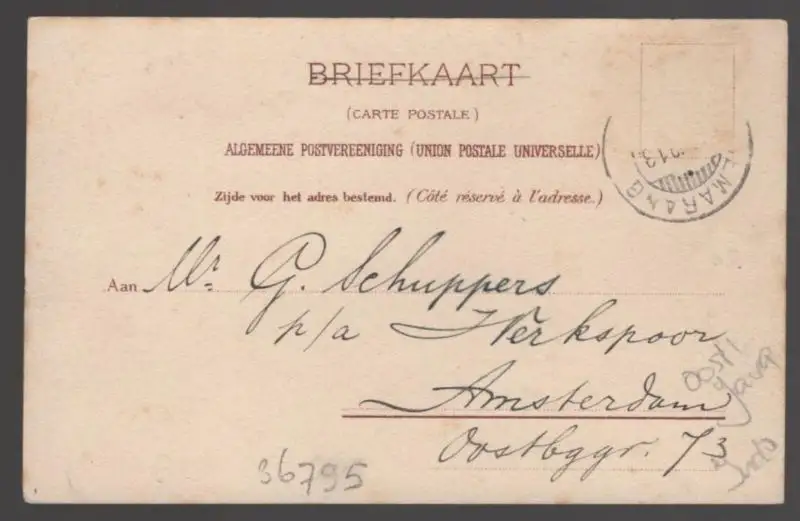 BRIEFKAART
(CARTE POSTALE)
ALGEMEENE POSTVEREENIGING (UNION POSTALE UNIVERSELLE)
Zijde voor het adres bestemd. (Côté réservé à l'adresse.)
EMARANG
Aan Mr. G. Schuppers
p/a Werkspoor
Amsterdam
Oostbggr. 73
36795
Java
Indo